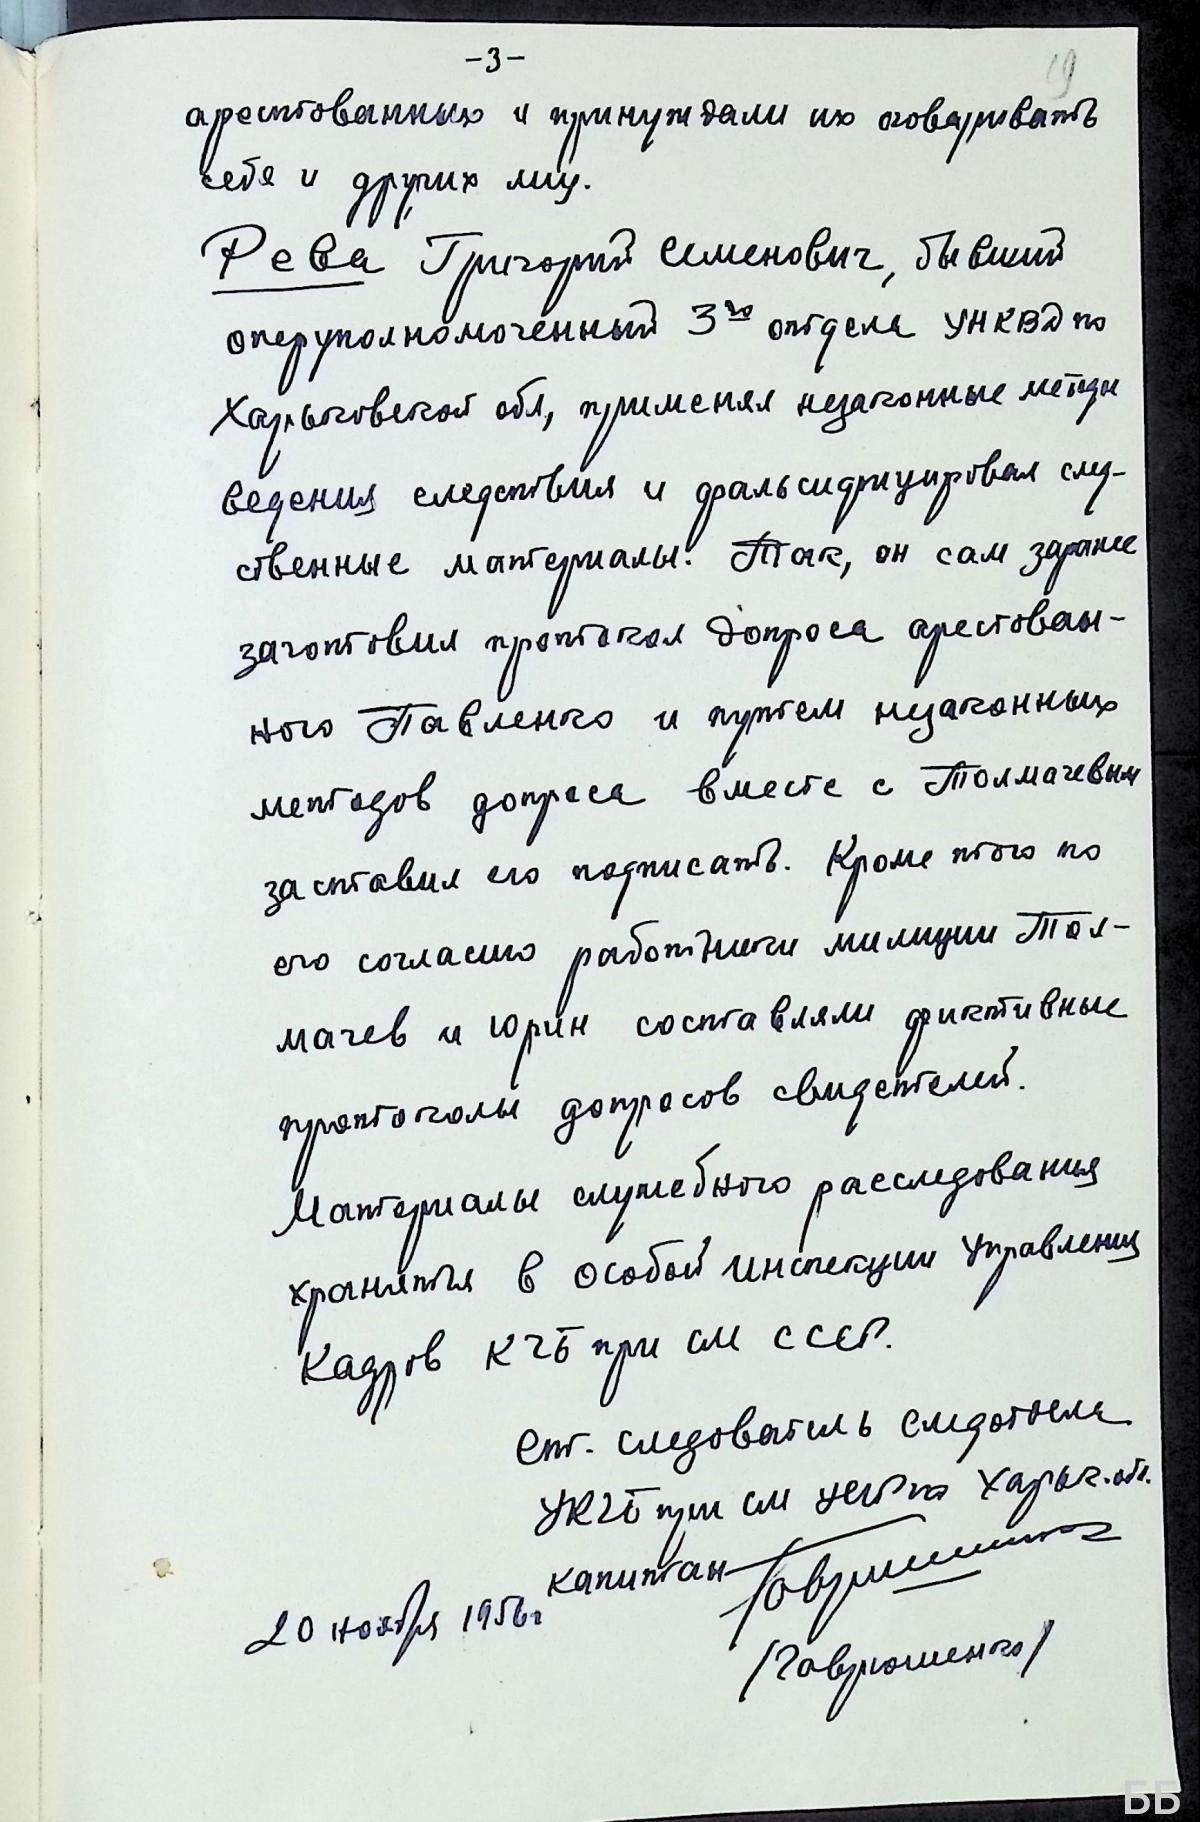 -3-
19
арестованных и принуждали их оговаривать
себя и других лиц.
Рева Григорий Семенович, бывший
оперуполномоченный 3го отдела УНКВД по
Харьковской обл, применял незаконные методы
ведения следствия и фальсифицировал след-
ственные материалы. Так, он сам заранее
заготовил протокол допроса арестован-
ного Павленко и путем незаконных
методов допроса вместе с Толмачевым
заставил его подписать. Кроме того по
его согласию работники милиции Тол-
мачев и Юрин составляли фиктивные
протоколы допросов свидетелей.
Материалы служебного расследования
хранятся в Особой инспекции Управления
Кадров КГБ при СМ СССР.
Ст. следователь следотдела
УКГБ при СМ УССР по Харьк. обл.
капитан Гаврюшенко
20 ноября 1956г
/Гаврюшенко/
ББ